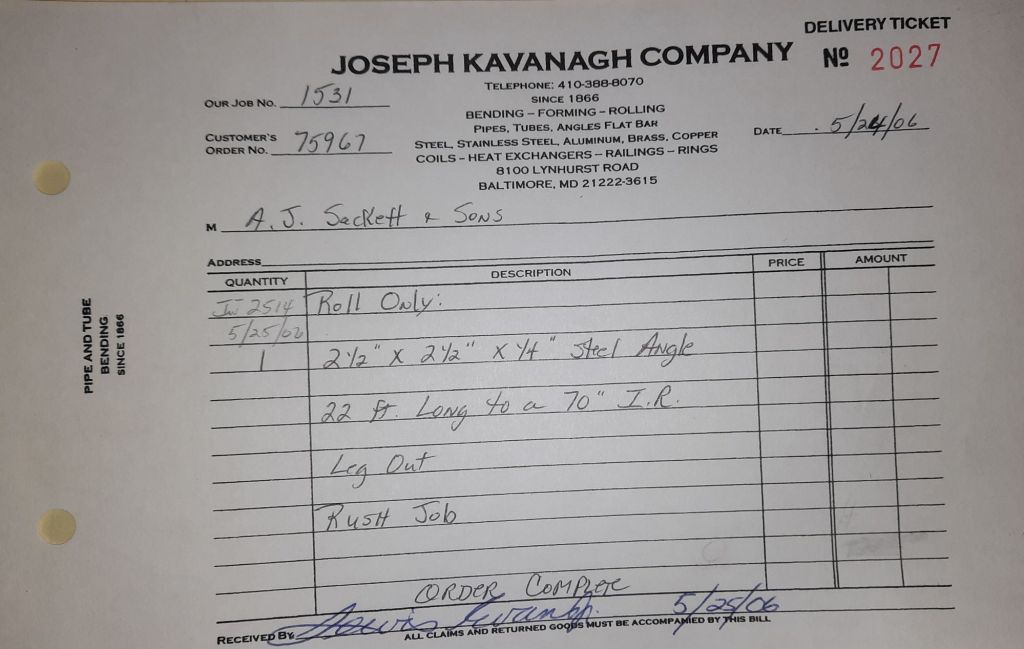 DELIVERY TICKET
JOSEPH KAVANAGH COMPANY
Nº 2027
TELEPHONE: 410-388-8070
SINCE 1866
BENDING – FORMING – ROLLING
PIPES, TUBES, ANGLES FLAT BAR
STEEL, STAINLESS STEEL, ALUMINUM, BRASS, COPPER
COILS – HEAT EXCHANGERS – RAILINGS – RINGS
8100 LYNHURST ROAD
BALTIMORE, MD 21222-3615
OUR JOB NO. 1531
CUSTOMER'S
ORDER NO. 75967
DATE 5/24/06
M A. J. Sackett & Sons
ADDRESS
QUANTITY DESCRIPTION PRICE AMOUNT
2514 Roll Only:
5/25/06
1 2½" X 2½" X ¼" Steel Angle
22 ft. Long to a 70" I.R.
Leg Out
Rush Job
ORDER COMPLETE
RECEIVED BY 5/25/06
ALL CLAIMS AND RETURNED GOODS MUST BE ACCOMPANIED BY THIS BILL
PIPE AND TUBE
BENDING
SINCE 1866